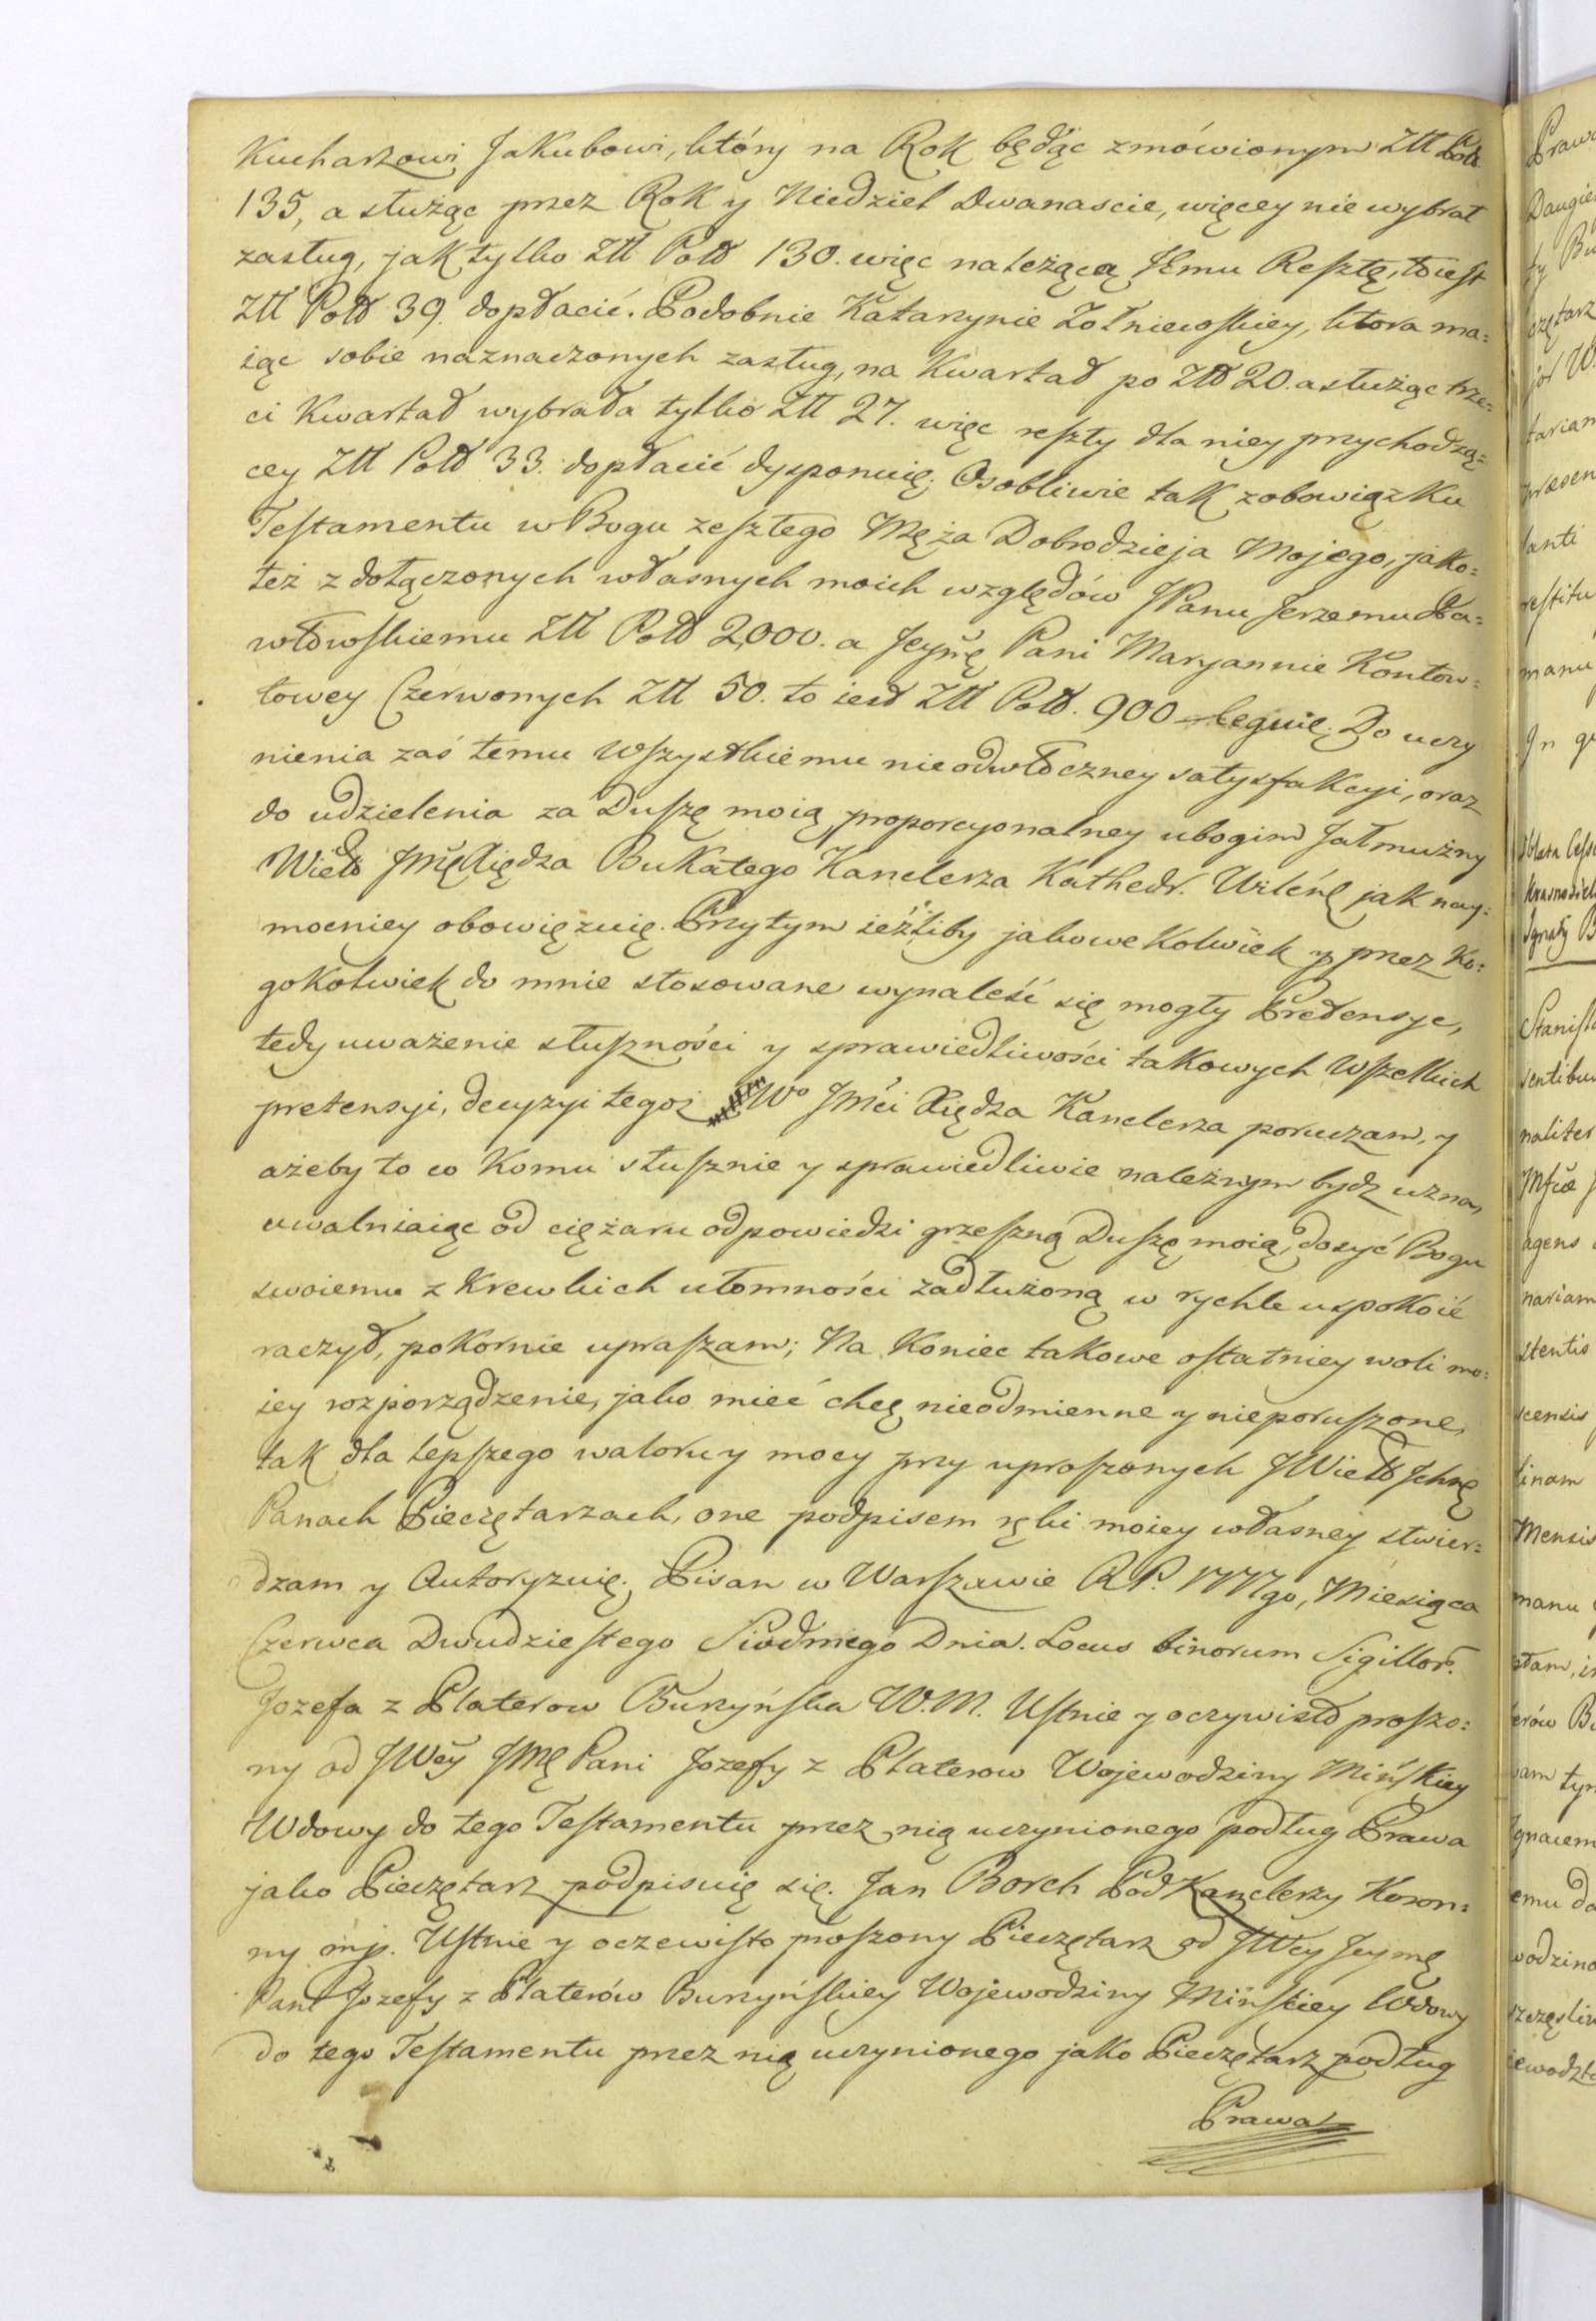 Kucharzowi Jakubowi, który na Rok będąc zmówionym Złł Pol
135, a służąc przez Rok y Niedziel Dwanascie, więcey nie wybrał
zasług, jak tylko Złł Poll 130. więc należącą JEmu Resztę, to iest
Złł Poll 39. dopłacić. Podobnie Katarzynie Zołniewskiey, ktora ma:
iąc sobie naznaczonych zasług, na Kwartał po Złł 20. a służąc trze:
ci Kwartał wybrała tylko Złł 27. więc reszty dla niey przychodzą:
cey Złł Poll 33. dopłacić dysponuię; Osobliwie tak z obowiązku
Testamentu w Bogu zeszłego Męża Dobrodzieja Mojego, jako:
też z dołączonych własnych moich względów JPanu Jerzemu Pa:
włowskiemu Złł Poll 2,000. a Jeymę Pani Maryannie Kontow:
towey Czerwonych Złł 50. to iest Złł Poll. 900 leguię; Do uczy
nienia zaś temu wszystkiemu nieodwłoczney satysfakcyi, oraz
do udzielenia za Duszę moią proporcyonalney ubogim Jałmużny
Wiel JMę Xiędza Bukatego Kanclerza Kathedr. Wileńę jak nay:
mocniey obowięzuię. Przytym ieżliby jakowe Kolwiek y przez ko:
gokolwiek do mnie stosowane wynaleść się mogły Pretensye,
tedy uważenie słuszności y sprawiedliwości takowych wszelkich
pretensyi, decyzyi tegoż Wo JMći Xiędza Kanclerza poruczam, y
ażeby to co Komu słusznie y sprawiedliwie należnym bydz uzna,
uwalniaiąc od ciężaru odpowiedzi grzeszną Duszę moią, dosyć Bogu
swoiemu z Krewkich ułomności zadłużoną w rychle uspokoić
raczył, pokornie upraszam; Na Koniec takowe ostatniey woli mo:
iey rozporządzenie, jako mieć chcę nieodmienne y nieporuszone,
tak dla lepszego waloru y mocy przy uproszonych JWiel Ichmę
Panach Pieczętarzach, one podpisem ręki moiey własney stwier:
dzam y Autoryzuię. Pisan w Warszawie RP. 1777go, Miesiąca
Czerwca Dwudziestego Siodmego Dnia. Locus binorum Sigillor.
Jozefa z Platerow Burzyńska W.M. Ustnie y oczywisto proszo:
ny od JWey JMę Pani Jozefy z Platerow Wojewodziny Mińskiey
Wdowy do tego Testamentu przez nią uczynionego podług Prawa
jako Pieczętarz podpisuię się. Jan Borch Pod Kanclerzy Koron:
ny mp. Ustnie y oczewisto proszony Pieczętarz od JWey Jeymę
Pani Jozefy z Platerów Burzyńskiey Wojewodziny Mińskiey Wdowy
do tego Testamentu przez nią uczynionego jako Pieczętarz podług
Prawa